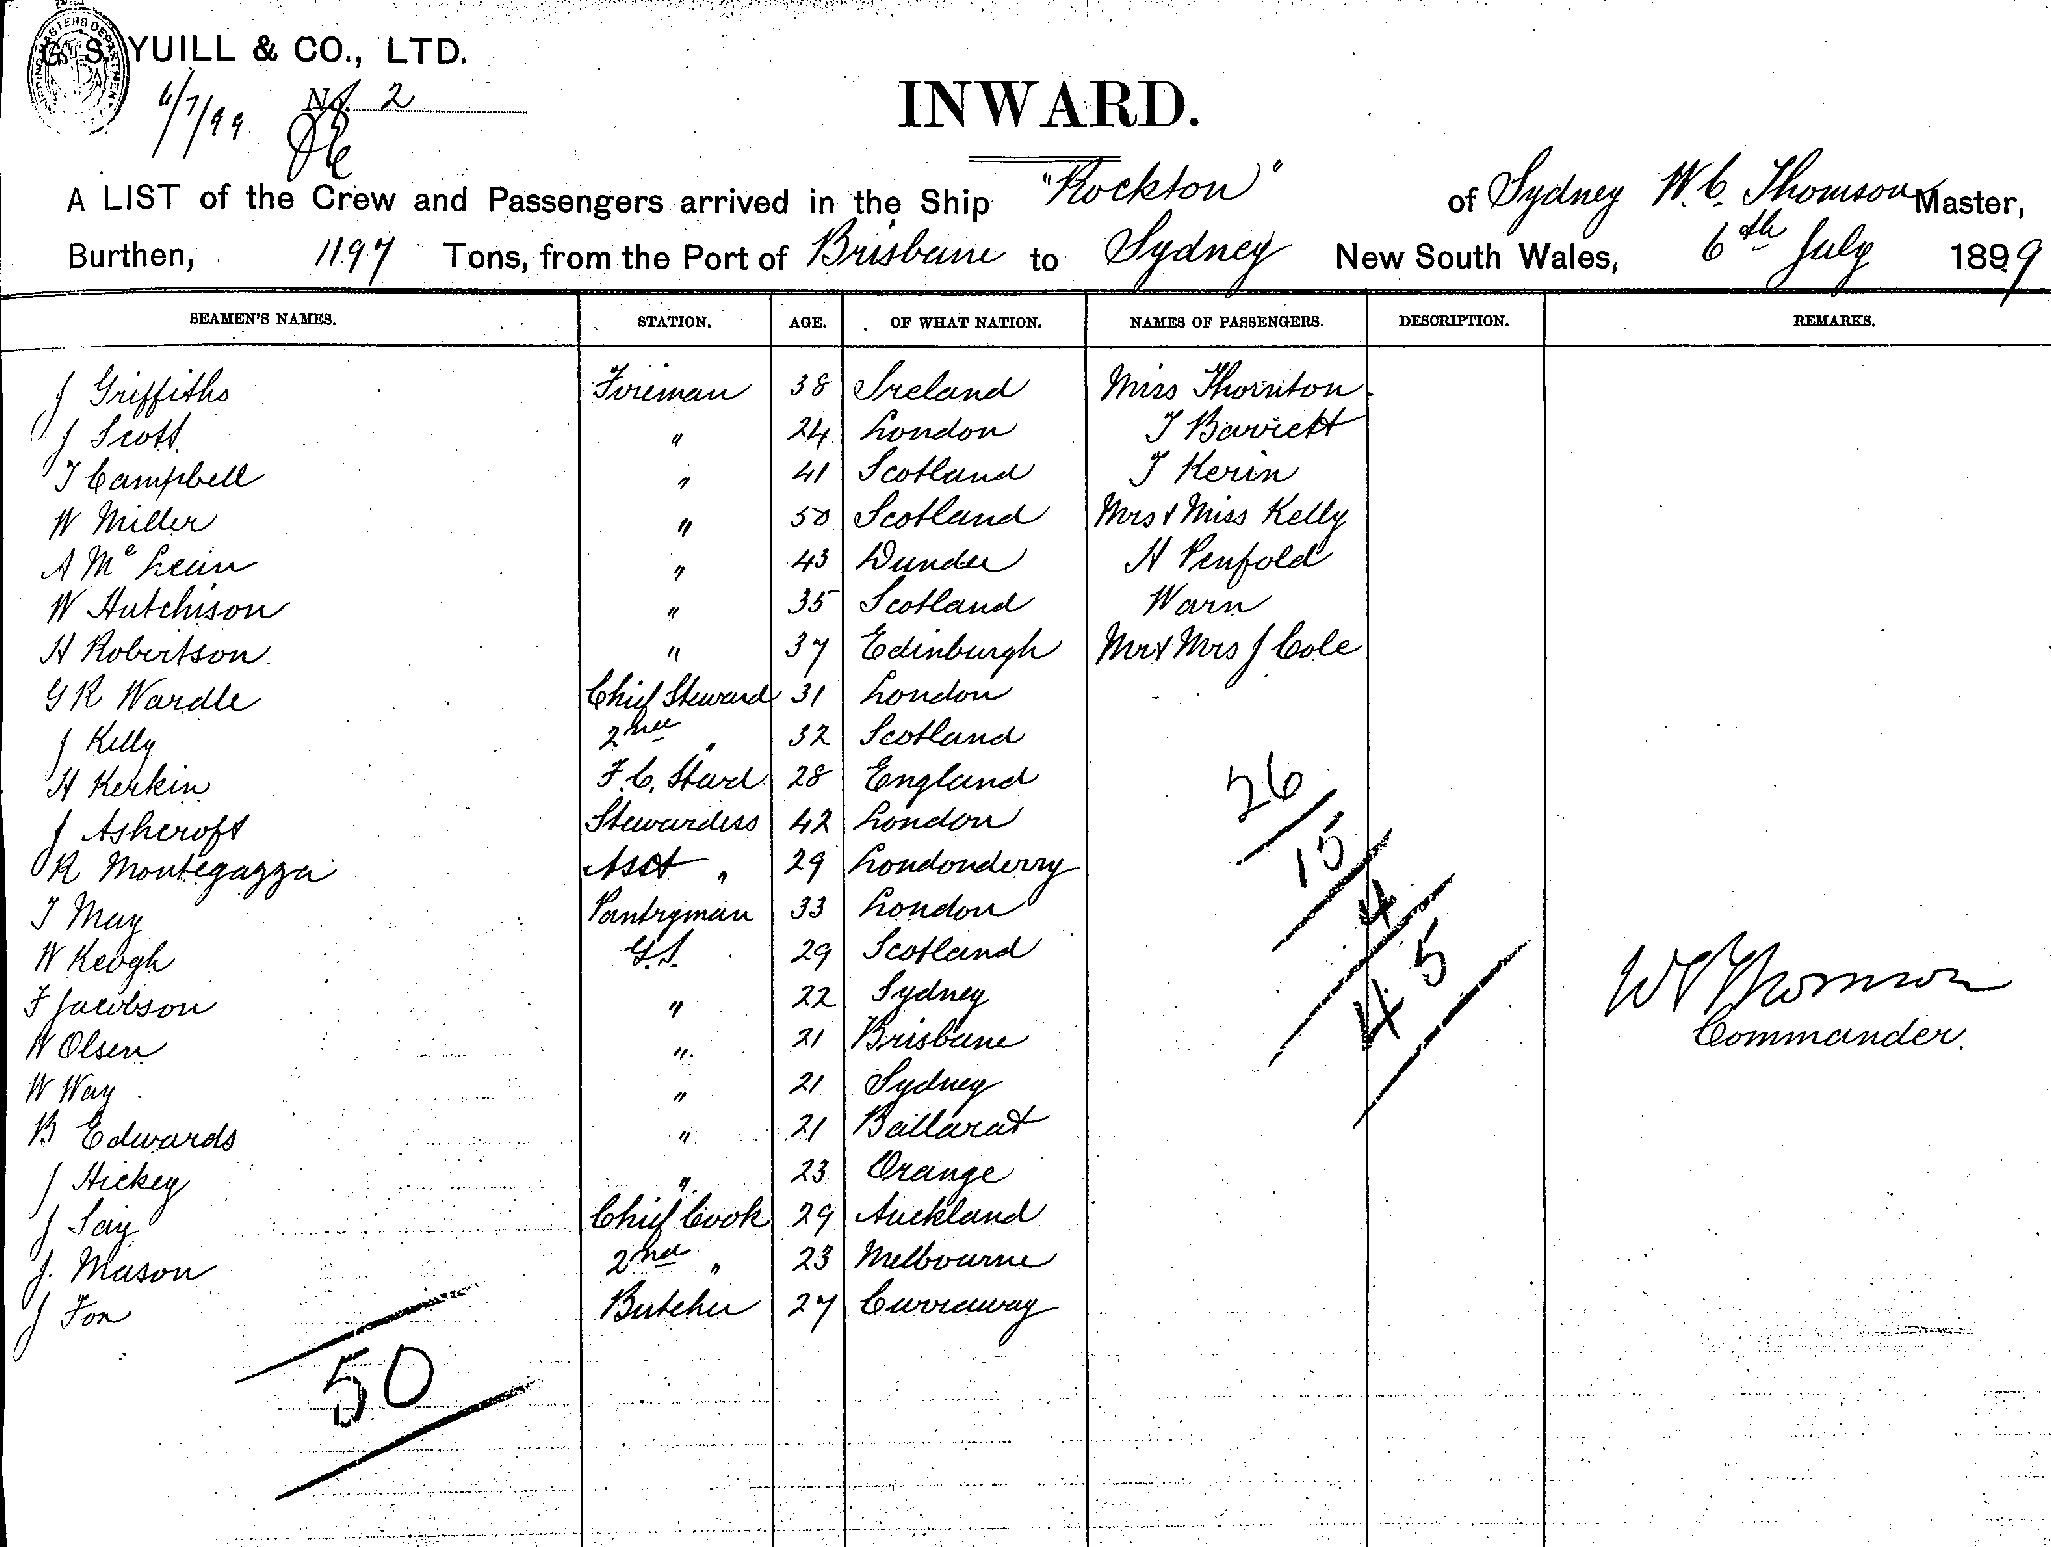 G. S. YUILL & CO., LTD.
6/7/99 No. 2
INWARD.
A LIST of the Crew and Passengers arrived in the Ship "Rockton" of Sydney W. C. Thomson Master,
Burthen, 1197 Tons, from the Port of Brisbane to Sydney New South Wales, 6th July 1899
SEAMEN'S NAMES. STATION. AGE. OF WHAT NATION. NAMES OF PASSENGERS. DESCRIPTION. REMARKS.
J Griffiths Fireman 38 Ireland Miss Thornton
J Scott " 24 London T Barrett
T Campbell " 41 Scotland T Kerin
W Miller " 50 Scotland Mrs & Miss Kelly
A Mc Lean " 43 Dundee H Penfold
W Hutchison " 35 Scotland Warn
H Robertson " 37 Edinburgh Mr & Mrs J Cole
G R Wardle Chief Steward 31 London
J Kelly 2nd " 32 Scotland
H Kerkin F. C. Stwd 28 England
J Ashcroft Stewardess 42 London
R Montegazza Asst " 29 Londonderry
T May Pantryman 33 London
W Keogh G.S. 29 Scotland
F Jacobson " 22 Sydney
W Olsen " 21 Brisbane
W Way " 21 Sydney
B Edwards " 21 Ballarat
J Hickey " 23 Orange
J Say Chief Cook 29 Auckland
J. Mason 2nd " 23 Melbourne
J Fox Butcher 27 Curraway
26
15
4
45
W C Thomson
Commander.
50